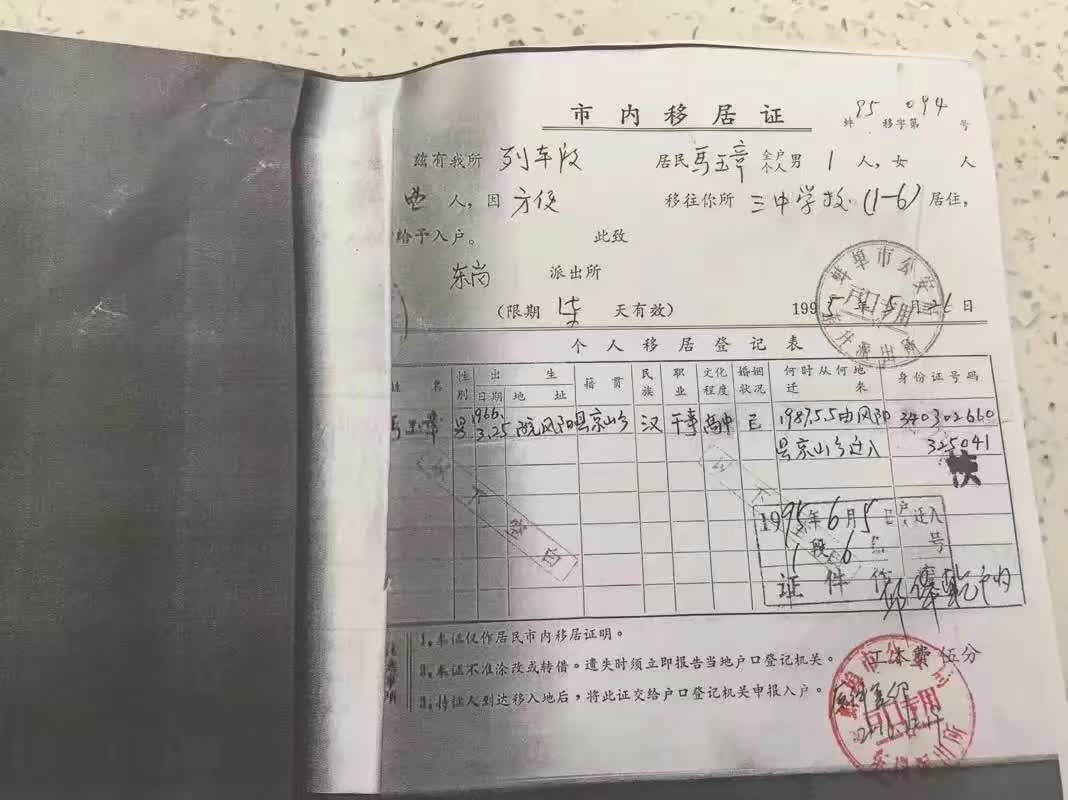 市内移居证
蚌 95 移字第 094 号
兹有我所 列车段 居民 马玉章 全户 个人 男 1 人，女 人
人，因 方便 移往你所 三中学校 (1-6) 居住，
给予入户。 此致
东岗 派出所
(限期 柒 天有效) 1995年5月26日
蚌埠市公安
户口专用
派出所
个人移居登记表
姓名 性别 出生 日期 地址 籍贯 民族 职业 文化程度 婚姻状况 何时从何地迁来 身份证号码
马玉章 男 1966.3.25 皖凤阳县京山乡 汉 干事 高中 已 1987.5.5由凤阳 340302660
县京山乡迁入 325041
1995年6月5日 户 迁入
1段6 号
证件作废
1。本证仅作居民市内移居证明。
2。本证不准涂改或转借。遗失时须立即报告当地户口登记机关。
3。持证人到达移入地后，将此证交给户口登记机关申报入户。
工本费伍分
专用